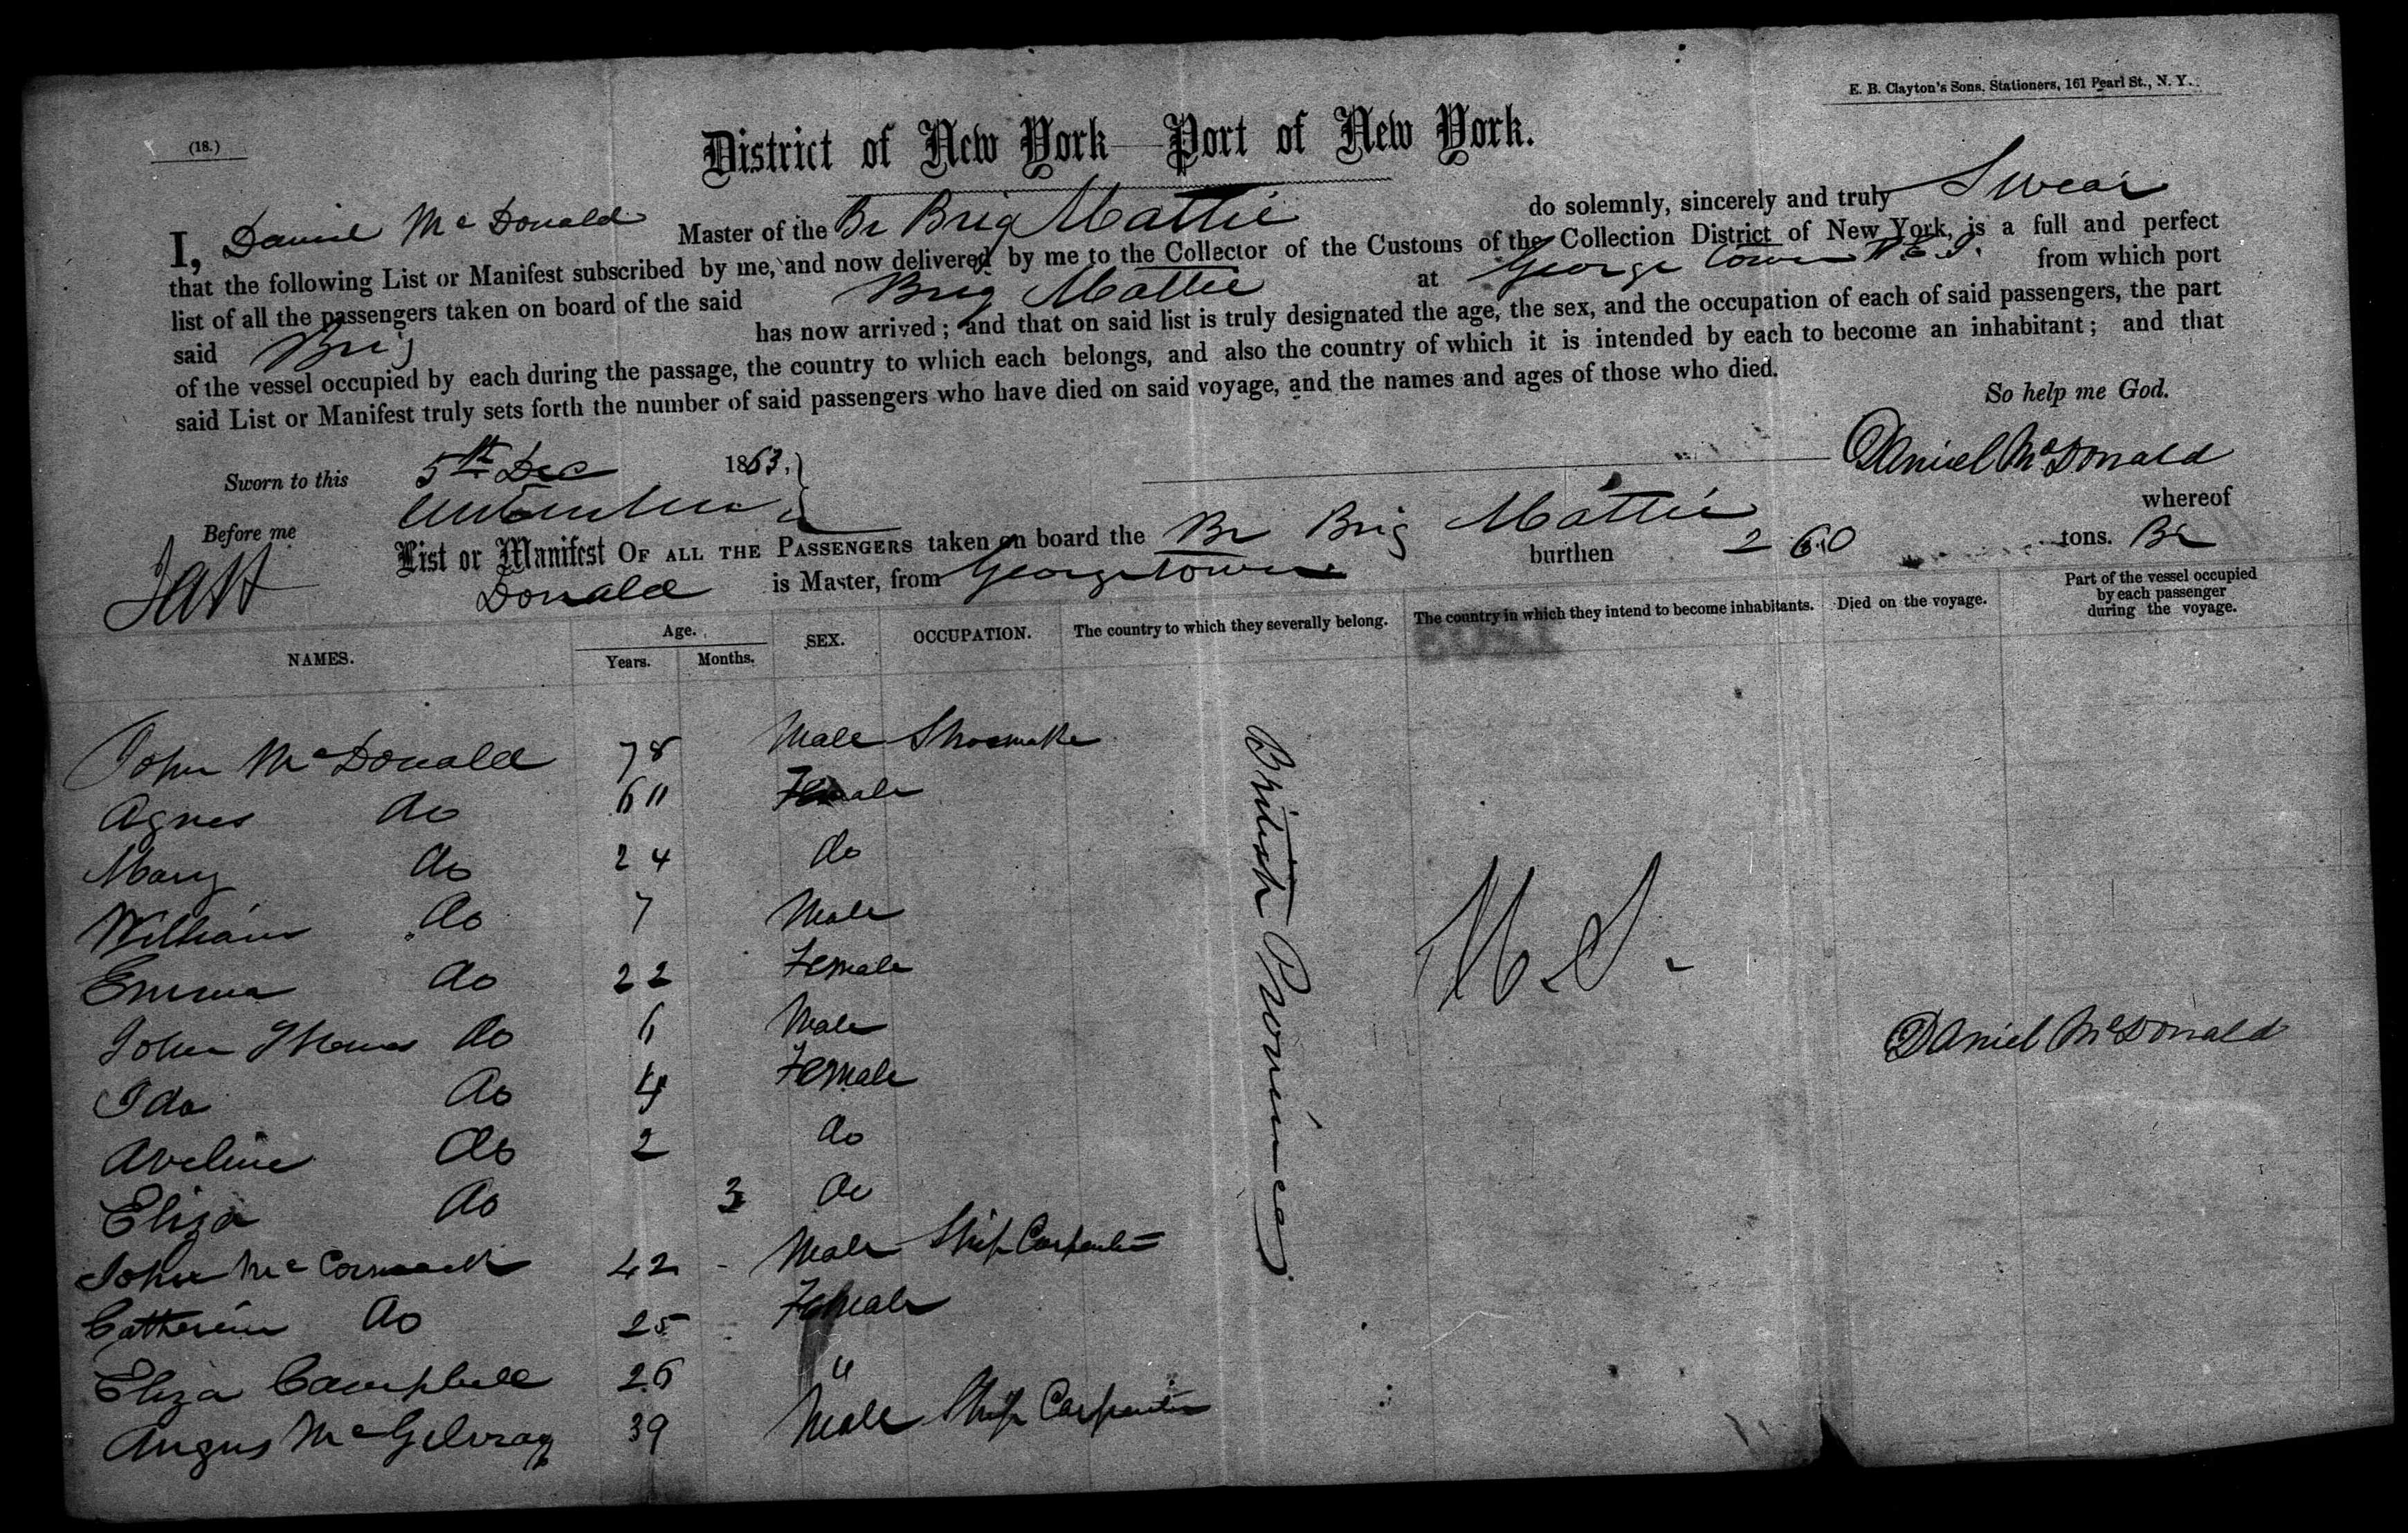 E. B. Clayton's Sons, Stationers, 161 Pearl St., N. Y.
(18.)
District of New York—Port of New York.
I, Daniel McDonald Master of the Br Brig Mattie do solemnly, sincerely and truly Swear
that the following List or Manifest subscribed by me, and now delivered by me to the Collector of the Customs of the Collection District of New York, is a full and perfect
list of all the passengers taken on board of the said Brig Mattie at George Town P.E.I. from which port
said Brig has now arrived; and that on said list is truly designated the age, the sex, and the occupation of each of said passengers, the part
of the vessel occupied by each during the passage, the country to which each belongs, and also the country of which it is intended by each to become an inhabitant; and that
said List or Manifest truly sets forth the number of said passengers who have died on said voyage, and the names and ages of those who died.
So help me God.
Sworn to this 5th Dec 1863.
Daniel McDonald
Before me
List or Manifest OF ALL THE PASSENGERS taken on board the Br Brig Mattie whereof
Donald is Master, from Georgetown burthen 260 tons. Br
NAMES. Age. Years. Months. SEX. OCCUPATION. The country to which they severally belong. The country in which they intend to become inhabitants. Died on the voyage. Part of the vessel occupied by each passenger during the voyage.
John McDonald 78 Male Shoemake
Agnes do 60 Female
Mary do 24 do
William do 7 Male
Emma do 22 Female
John Thomas do 6 Male
Ida do 4 Female
Aveline do 2 do
Eliza do 3 do
John McCormack 42 - Male Ship Carpenter
Catherine do 25 Female
Eliza Campbell 26 "
Angus McGilvray 39 Male Ship Carpenter
British Provinces
U.S.
Daniel McDonald